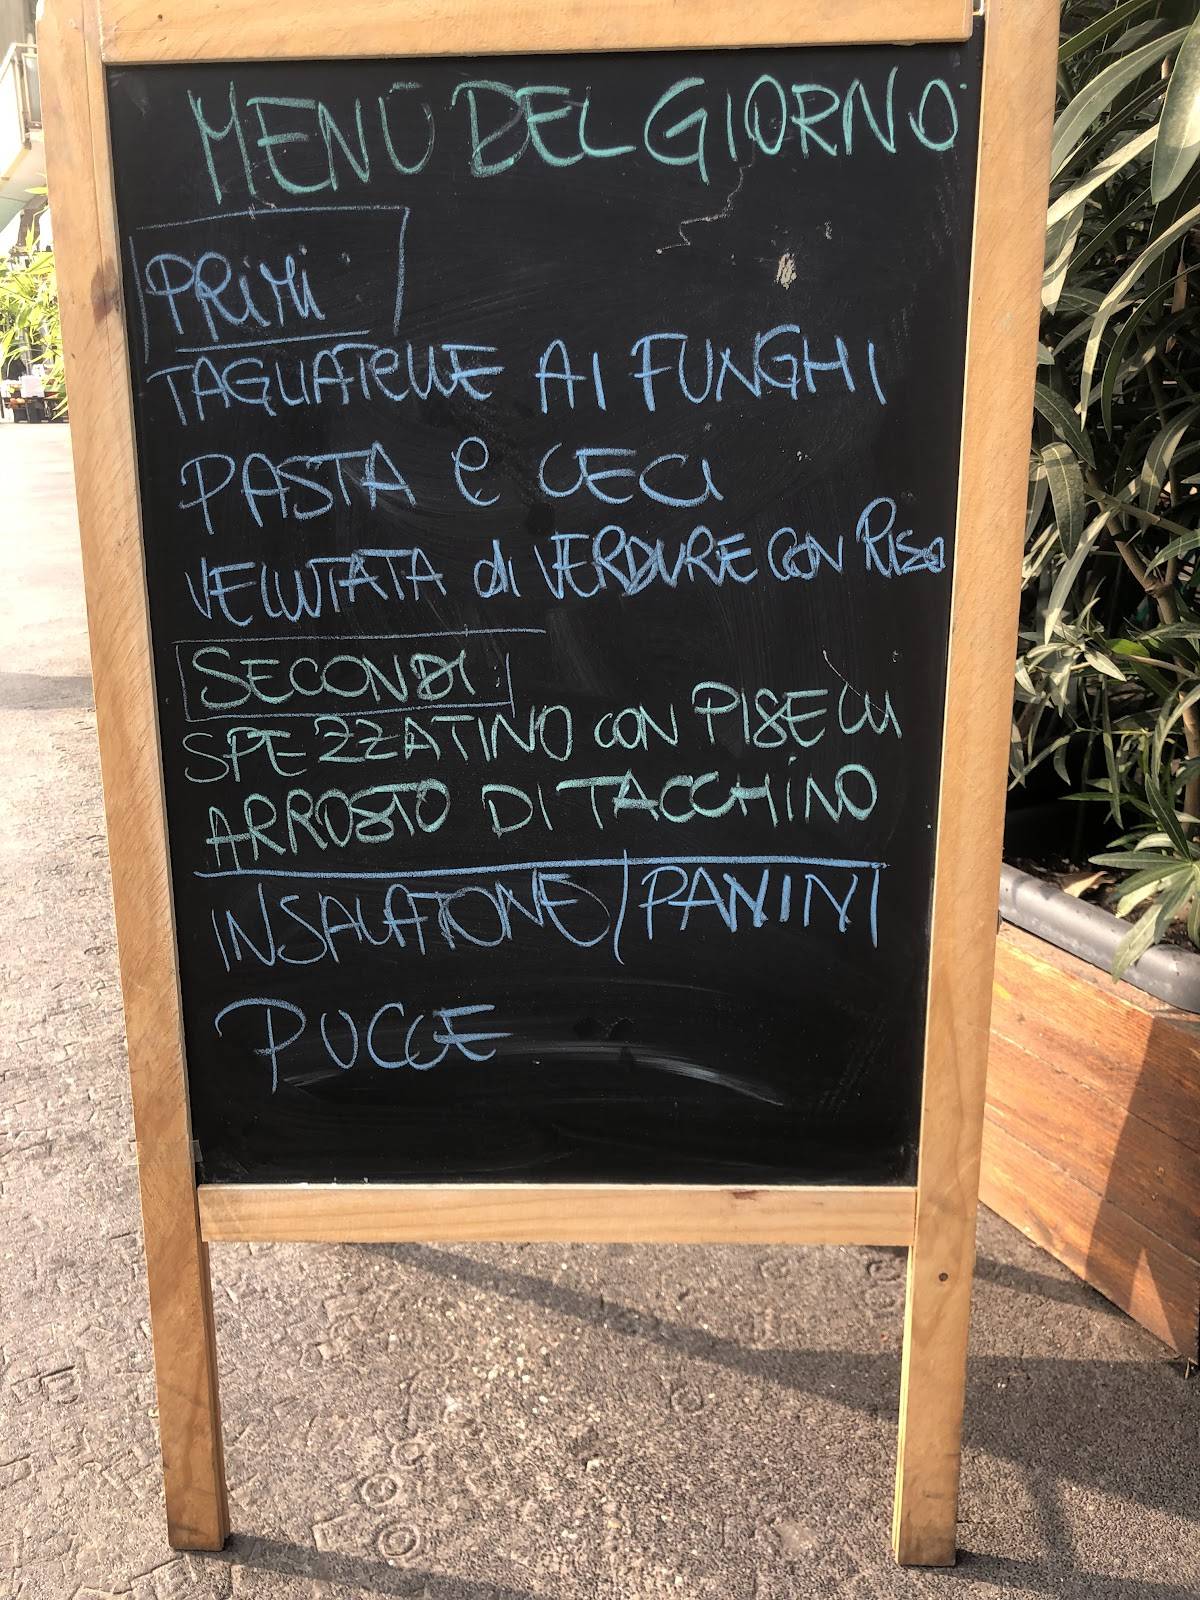 MENÙ DEL GIORNO
PRIMI
TAGLIATELLE AI FUNGHI
PASTA e CECI
VELLUTATA di VERDURE CON RISO
SECONDI
SPEZZATINO CON PISELLI
ARROSTO DI TACCHINO
INSALATONE/PANINI
PUCCE